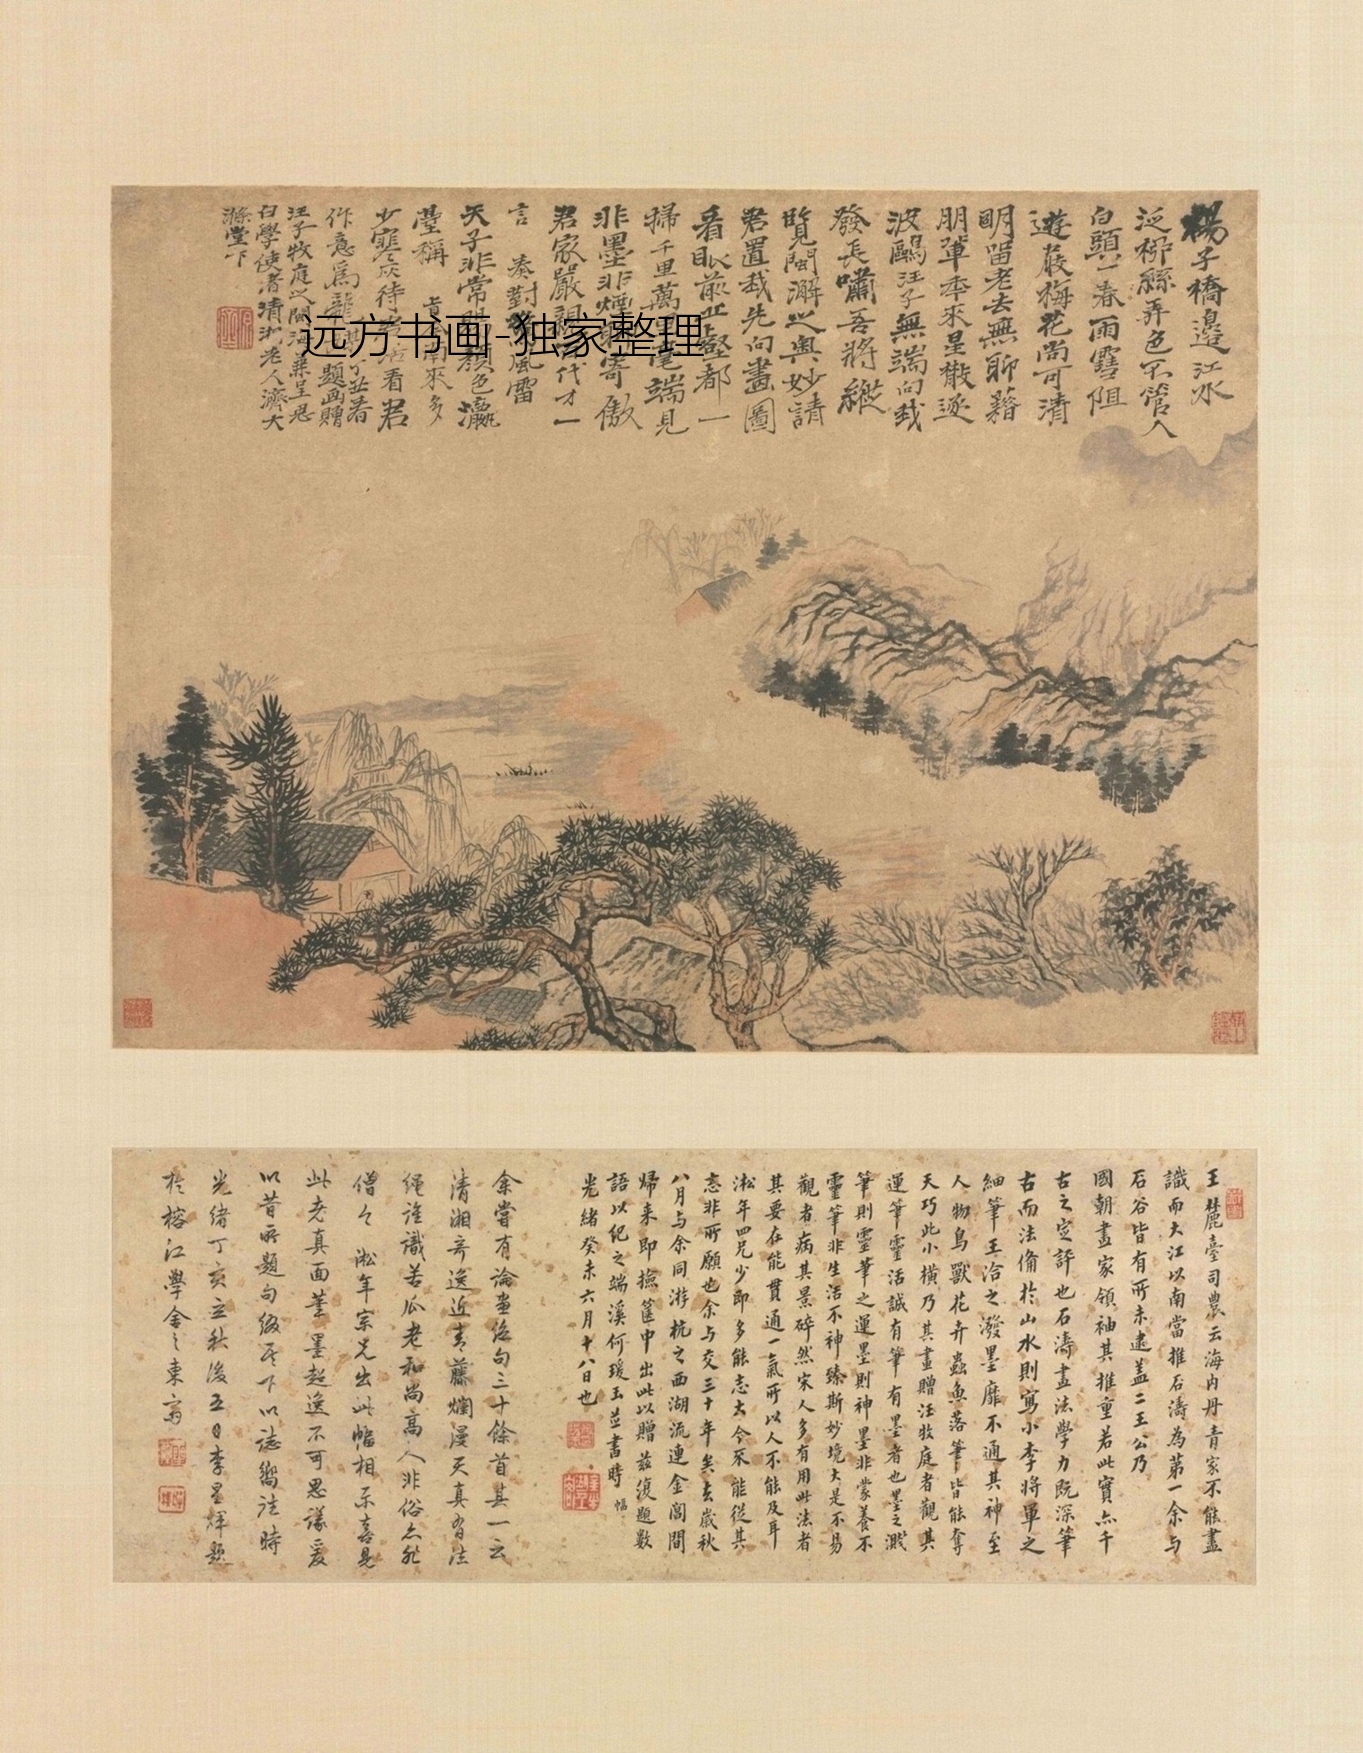 楊子橋邊江水
泛柳絲弄色不管人
白頭一春雨雪阻
遊嚴梅花尚可清
明留老去無聊藉
朋輩季來星散逐
波鷗汪子無端向我
發長嘯吾將縱
覽閩澥之奧妙請
君置我先向畫圖
看眼前丘壑都一
掃千里萬里毫端見
非墨非煙聊寄傲
君家嚴親代才一
言奏對風雷
天子非常顏色瀛
臺稱南來多
少寒灰待君看君
作意為龍題畫贈
汪子牧庭之閩海兼呈思
白學使者清湘老人濟大
滌堂下
远方书画-独家整理
王麓臺司農云海内丹青家不能盡
識而大江以南當推石濤為第一余与
石谷皆有所未逮蓋二王公乃
國朝畫家領袖其推重若此實亦千
古之定評也石濤畫法學力既深筆
古而法備於山水則寫小李將軍之
細筆王洽之潑墨靡不通其神至
人物鳥獸花卉蟲魚落筆皆能奪
天巧此小橫乃其畫贈汪牧庭者觀其
運筆靈活誠有筆有墨者也墨之濺
筆則靈筆之運墨則神墨非蒙養不
靈筆非生活不神臻斯妙境大是不易
觀者病其景碎然宋人多有用此法者
其要在能貫通一氣所以人不能及耳
淞年四兄少即多能志大今不能從其
志非所願也余与交三十年矣去歲秋
八月与余同游杭之西湖流連金閶間
歸来即撿篋中出此以贈茲復題數
語以纪之端溪何瑗玉並書時
光緒癸未六月十八日也
余嘗有論畫絶句三十餘首其一云
清湘奇逸近青藤爛漫天真有法
繩誰識苦瓜老和尚高人非俗亦非
僧今淞年宗兄出此幅相示喜見
此老真面筆墨超逸不可思議爰
以昔所題句綴於下以誌嚮往時
光緒丁亥立秋後五日李星輝題
於榕江學舍之東齋